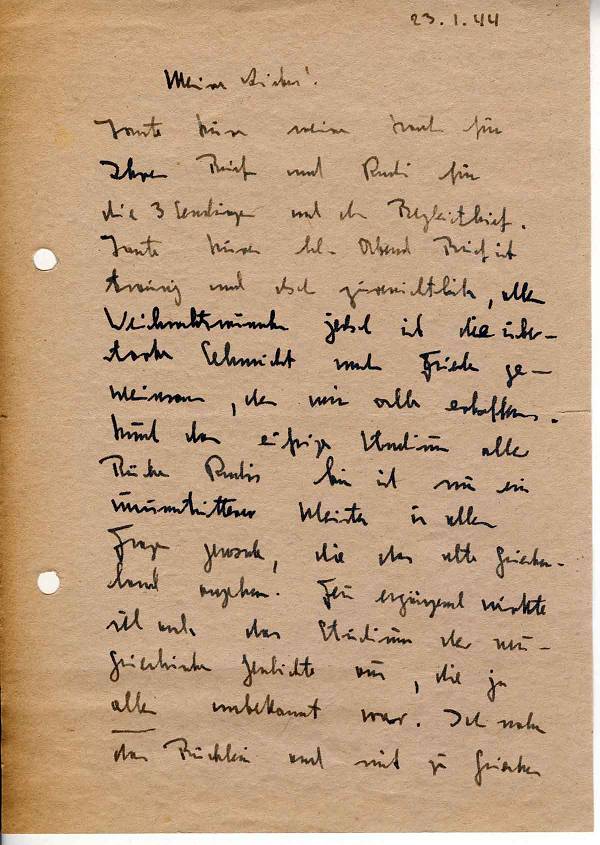 23.1.44
Meine Lieben!
Heute kam meine für
Ihren Brief und Rudi für
die 3 Sendungen und den Begleitbrief.
Heute Abend Brief ist
traurig und doch zuversichtlich, allen
Weihnachtswünschen ist die über-
starke Sehnsucht nach Frieden ge-
meinsam, den wir alle erhoffen.
das eifrige Studium aller
Bücher Rudis bin ich nun ein
unumstrittener Meister in allen
Fragen, die das alte Griechen-
land angehen. ergänzend wirkte
sich auch das Studium der neu-
griechischen Geschichte aus, die ja
allen unbekannt war. Ich nahm
das Büchlein und mit zu Griechen